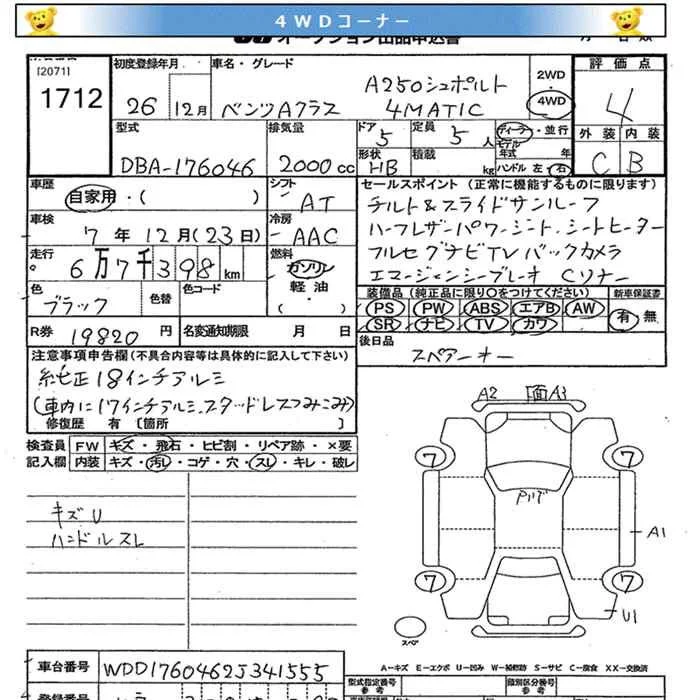 4WDコーナー
オークション出品申込書
[2071]
1712
初度登録年月
26年 12月
車名・グレード
ベンツAクラス
A250シュポルト
4MATIC
2WD
4WD
評価点
4
外装 内装
C B
型式
DBA-176046
排気量
2000cc
ドア
5
定員
5人
形状
HB
積載
kg
ディーラー・並行
モデル
年式 年
ハンドル 左・右
車歴
自家用・( )
シフト
AT
車検
7年12月(23日)
冷房
AAC
走行
6万7千398km
燃料
ガソリン
軽油・
( )
色
ブラック
色替
色コード
R券 19820円
名変通知期限 月 日
セールスポイント(正常に機能するものに限ります)
チルト&スライドサンルーフ
ハーフレザーパワーシート、シートヒーター
フルセグナビTVバックカメラ
エマージェンシーブレーキ Cソナー
装備品(純正品に限り○をつけてください)
新車保証書
PS PW ABS エアB AW
SR ナビ TV カワ
有・無
後日品
スペアキー
注意事項申告欄(不具合内容等は具体的に記入して下さい)
純正18インチアルミ
(車内に17インチアルミ、スタッドレスつみこみ)
修復歴 有 〔箇所 〕
検査員
記入欄
FW キズ・飛石・ヒビ割・リペア跡・×要
内装 キズ・汚レ・コゲ・穴・スレ・キレ・破レ
キズU
ハンドルスレ
A2 A3
7 7
A1
7 7
U1
スペア
A-キズ E-エクボ U-凹み W-補修跡 S-サビ C-腐食 XX-交換済
車台番号
WDD1760462J341555
型式指定番号
参考
類別区分番号
参考
登録番号